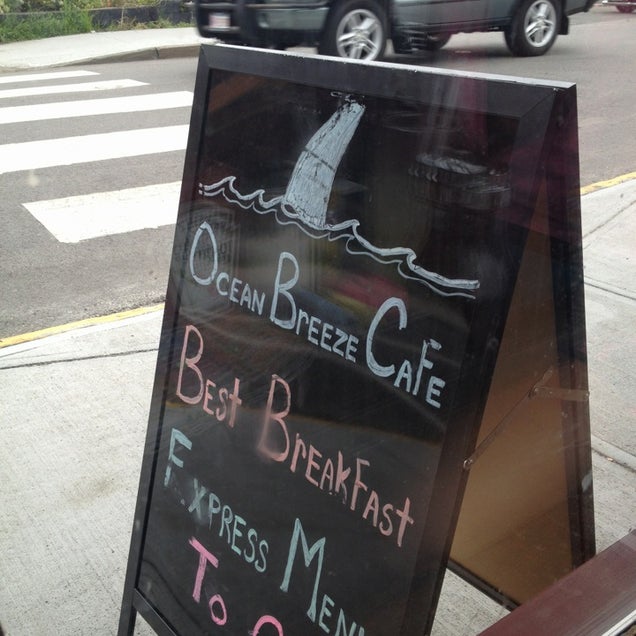 Ocean Breeze Cafe
Best Breakfast
Express Menu
To